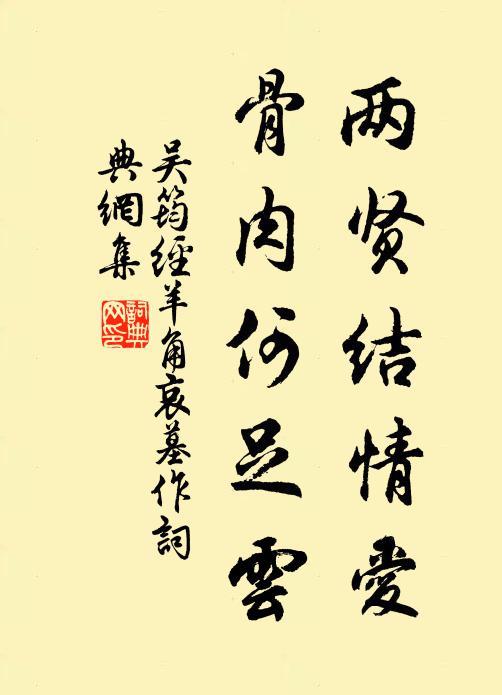 两贤结情爱
骨肉何足雲
吴筠經羊角哀墓作詞
典網集
詞典
网印